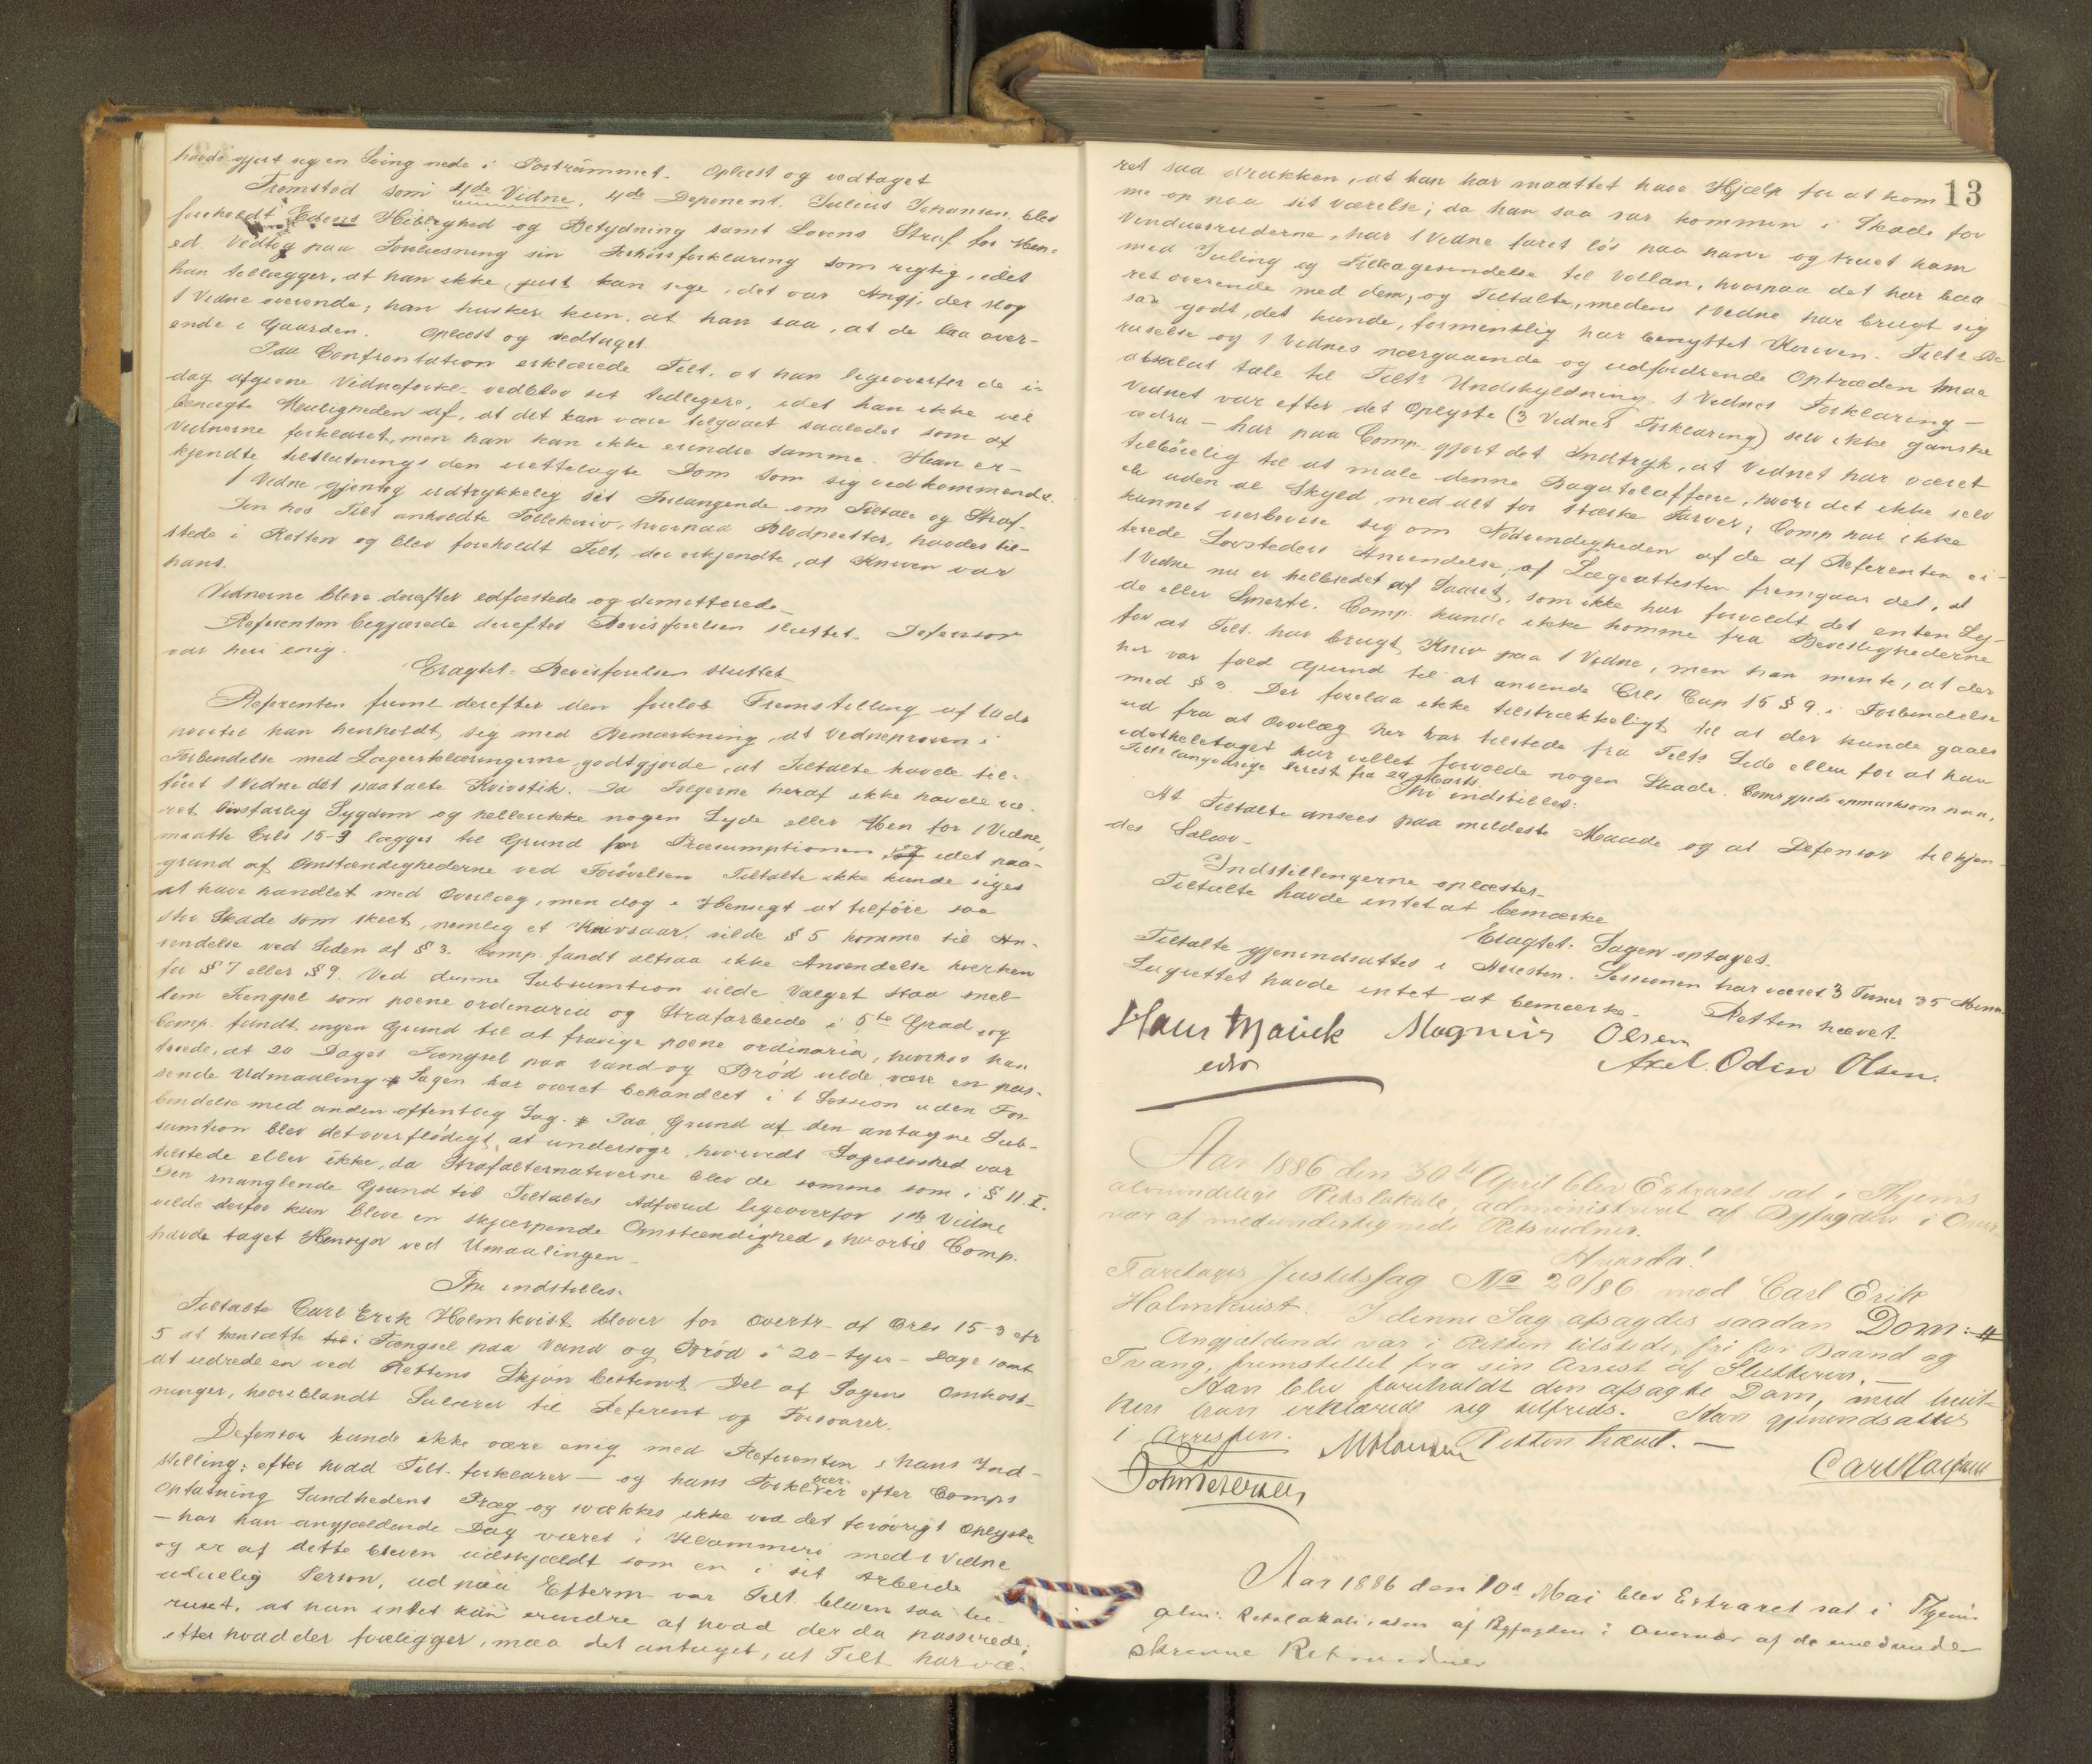 havde gjort sig en Sving nede i Portrummet. Oplæst og vedtaget
Fremstod som 4de Vidne, 4de Deponent Julius Johansen, blev
foreholdt Edens Hellighed og Betydning samt Lovens Straf for Men-
ed. Vedtog paa Forelæsning sin Forhørsforklaring som rigtig, idet
han tillægger, at han ikke just kan sige, det var Angj. der slog
1 Vidne overende; han husker kun, at han saa, at de laa over-
ende i Gaarden. Oplæst og vedtaget.
Paa Confrontation erklærede Tilt. at han ligeoverfor de i
dag afgivne Vidneforkl. vedblev sit tidligere, idet han ikke vil
benægte Muligheden af, at det kan være tilgaaet saaledes som af
Vidnerne forklaret, men han kan ikke erindre samme. Han er-
kjendte tilslutnings den irettelagte Dom som sig vedkommende.
1 Vidne gjentog udtrykkelig sit Forlangende om Tiltale og Straf.
Den hos Tilt anholdte Tollekniv, hvorpaa Blodpletter, havdes til-
stede i Retten og blev foreholdt Tilt, der erkjendte, at Kniven var
hans.
Vidnerne bleve derefter edfæstede og dimitterede
Referenten begjærede derefter Bevisførelsen sluttet. Defensor
var heri enig.
Eragtet. Bevisførelsen sluttet
Referenten fremt derefter den forelob Fremstilling af
han henholdt sig med Bemærkning, at Vidneprovene i
Forbindelse med Lægeerklæringerne godtgjorde, at Tiltalte havde til-
føiet 1 Vidne det paatalte Knivstik. Da Følgerne heraf ikke havde væ-
ret livsfarlig Sygdom og heller ikke nogen Lyde eller Men for 1 Vidne,
maatte Crls 15-9 lægges til Grund for Præsumptionen, og idet paa-
grund af Omstændighederne ved Forøvelsen Tiltalte ikke kunde siges
at have handlet med Overlæg, men dog i Hensigt at tilføie saa
stor Skade som skeet, nemlig et Knivsaar, vilde § 5 komme til An-
vendelse ved Siden af § 3. Comp. fandt altsaa ikke Anvendelse hverken
for § 7 eller § 9. Ved denne Subsumtion vilde Valget staa mel-
lem Fængsel som poena ordinaria og Strafarbeide i 5te Grad og
Comp. fandt ingen Grund til at fravige poena ordinaria, hvorhos han
troede, at 20 Dages Fængsel paa Vand og Brød vilde være en pas-
sende Udmaaling. Sagen har været behandlet i 1 Session uden For-
bindelse med anden offentlig Sag. Paa Grund af den antagne Sub-
sumtion blev det overflødigt at undersøge, hvorvidt Sagesløshed var
tilstede eller ikke, da Strafalternativerne blev de samme som i § 11. I.
Den manglende Grund til Tiltaltes Adfærd ligeoverfor 1ste Vidne
vilde derfor kun blive en skjærpende Omstændighed, hvortil Comp.
havde taget Hensyn ved Umaalingen.
Thi indstilles:
Tiltalte Carl Erik Holmkvist bliver for Overtr. af Crls 15-3 cfr
5 at hensætte i Fængsel paa Vand og Brød i 20 - tyve - Dage samt
at udrede en ved Rettens Skjøn bestemt Del af Sagens Omkost-
ninger, hvoriblandt Salærer til Referent og Forsvarer.
Defensor kunde ikke være enig med Referenten i hans Ind-
stilling; efter hvad Tilt. forklarer - og hans Forkl. bær efter Comps
Opfatning Sandhedens Præg og svækkes ikke ved det forøvrigt Oplyste
- har han angjældende Dag været i Klammeri med 1 Vidne
og er af dette bleven udskjældt som en i sit Arbeide
uduelig Person, ud paa Efterm. var Tilt. bleven saa be-
ruset, at han intet kan erindre af hvad der da passerede;
efter hvad der foreligger, maa det antages, at Tilt har væ-
13
ret saa drukken, at han har maattet have Hjælp for at kom
me op paa sit Værelse; da han saa var kommen i Skade for
Vinduesruderne, har 1 Vidne faret løs paa ham og truet ham
med Juling og Tilbagesendelse til Vollan, hvorpaa det har baa
ret overende med dem, og Tiltalte, medens 1 Vidne har brugt sig
saa godt, det kunde, formentlig har benyttet Kniven. Tilts Be
ruselse og 1 Vidnes nærgaaende og udfordrende Optræden maa
absolut tale til Tilts Undskyldning. 1 Vidnes Forklaring -
Vidnet var efter det Oplyste (3 Vidnes Forklaring) selv ikke ganske
ædru - har paa Comp. gjort det Indtryk, at Vidnet har været
tilbøielig til at male denne Bagatelaffære, hvori det ikke selv
er uden al Skyld, med alt for stærke Farver; Comp har ikke
kunnet overbevise sig om Nødvendigheden af de af Referenten ci-
terede Lovsteders Anvendelse; af Lægeattesten fremgaar det, at
1 Vidne nu er helbredet af Saaret, som ikke har forvoldt det enten Ly-
de eller Smerte. Comp. kunde ikke komme fra Bevislighederne
for at Tilt. har brugt Kniv paa 1 Vidne, men han mente, at der
her var fuld Grund til at anvende Crls Cap 15 § 9 i Forbindelse
med § 3. Der forelaa ikke tilstrækkeligt til at der kunde gaaes
ud fra at Overlæg her var tilstede fra Tilts Side eller for at han
idetheletaget har villet forvolde nogen Skade. Comp gjorde opmærksom paa,
Tilts langvarige Arrest fra 29 Marts.
Thi indstilles:
At Tiltalte ansees paa mildeste Maade og at Defensor tilkjen-
des Salær.
Indstillingerne oplæstes.
Tiltalte havde intet at bemærke
Eragtet: Sagen optages.
Tiltalte gjenindsattes i Arresten. Sessionen har været 3 Timer 35 Min.
Lagrettet havde intet at bemærke. Retten hævet.
Hans Magnus Olsen
Axel. Odin Olsen.
Aar 1886 den 30te April blev Extraret sat i Thjems
almindelige Retslokale, administreret af Byfogden i Over-
vær af medundertegnede Retsvidner.
Hvorda!
Foretages Justitssag No 20/86 mod Carl Erik
Holmkvist. I denne Sag afsagdes saadan Dom:
Angjældende var i Retten tilstede, fri for Baand og
Tvang, fremstillet fra sin Arrest af Slutteren. -
Han blev foreholdt den afsagte Dom, med hvil-
ken han erklærede sig tilfreds. Han gjenindsattes
i Arresten. Retten hævet. -
Aar 1886 den 10d Mai blev Extraret sat i Thjems
alm: Retslokale, adm af Byfogden i Overvær af de medunder
skrevne Retsvidner